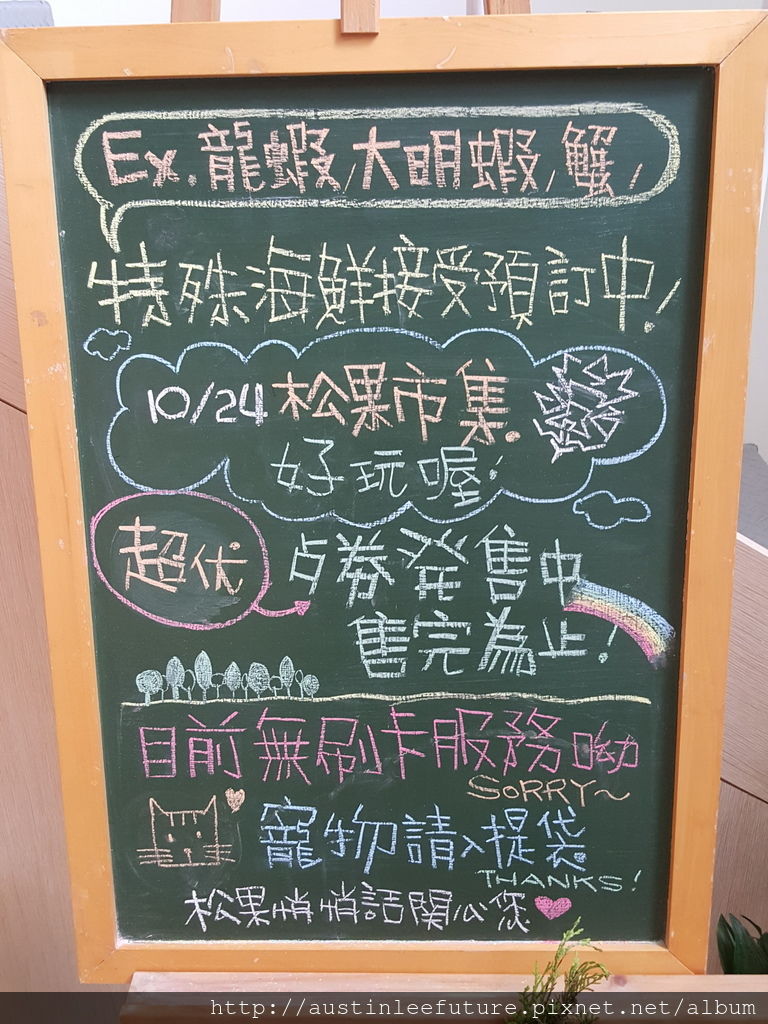 Ex. 龍蝦, 大明蝦, 蟹,
特殊海鮮接受預訂中!
10/24 松果市集.
好玩喔!
超优
占券発售中
售完為止!
目前無刷卡服務呦
SORRY~
寵物請入提袋
THANKS!
松果悄悄話關心您
http://austinleefuture.pixnet.net/album